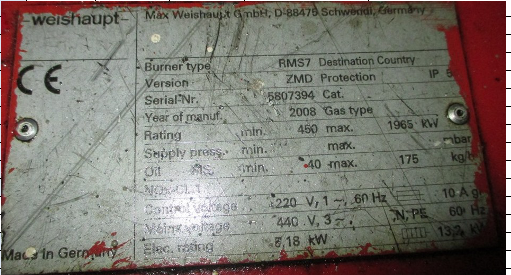 -weishaupt-
Max Weishaupt GmbH, D-88475 Schwendi, Germany
Burner type RMS7 Destination Country
Version ZMD Protection IP
Serial-Nr. 5807394 Cat.
Year of manuf. 2008 Gas type
Rating min. 450 max. 1965 kW
Supply press. min. max. mbar
Oil min. 40 max. 175 kg/h
Control voltage 220 V, 1 ~, 60 Hz 10 A gl
Mains voltage 440 V, 3 ~, N, PE 60 Hz
Elec. rating kW
Made in Germany